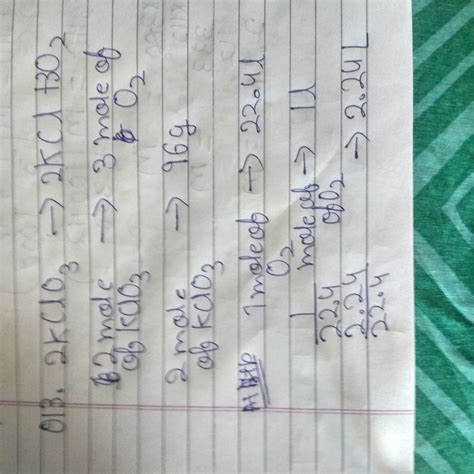 Q13. 2KClO3 → 2KCl + 3O2
2 mole of KClO3 → 3 mole of O2
2 mole of KClO3 → 96g
1 mole of O2 → 22.4l
1/22.4 mole of O2 → 1l
2.24/22.4 → 2.24L